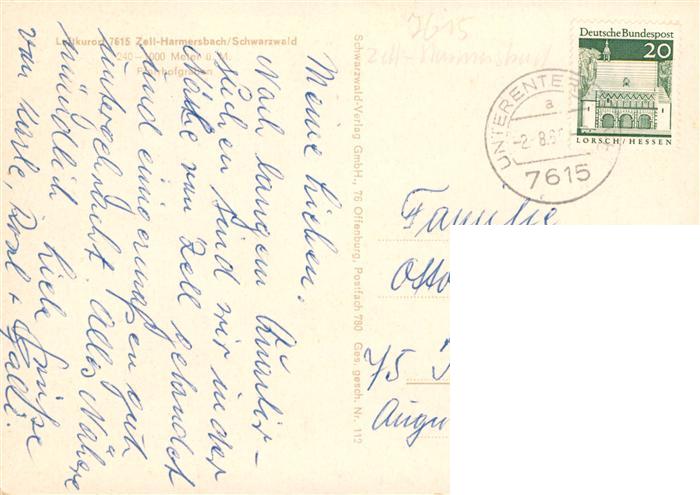 Luftkurort 7615 Zell-Harmersbach/Schwarzwald
240–1000 Meter ü. M.
Meine Lieben.
Nach langem Quartir-
suchen sind wir in der
Nähe von Zell gelandet
und einigermaßen gut
untergebracht. Alles Nähere
mündlich. Liebe Grüße
von Karle, Rosl + Gadi.
Schwarzwald-Verlag GmbH., 76 Offenburg, Postfach 780 Ges. gesch. Nr. 112
7615
Zell-Harmersbach
Deutsche Bundespost
20
LORSCH/HESSEN
UNTERENTE
a
-2.-8.6
7615
Familie
Otto
75
Augu